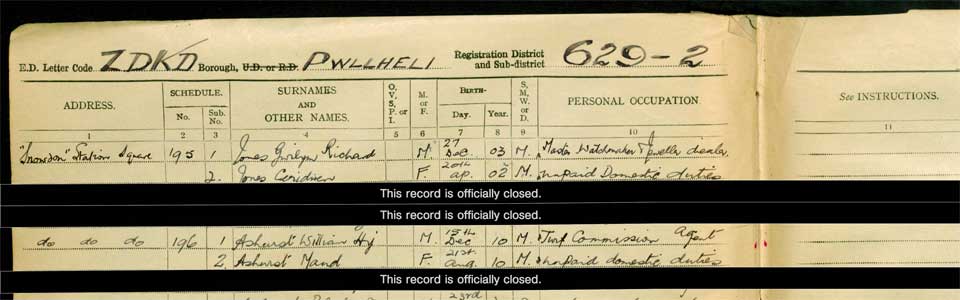 E.D. Letter Code ZDKD Borough, U.D. or R.D. PWLLHELI Registration District and Sub-district 629-2
ADDRESS. SCHEDULE. No. Sub. No. SURNAMES AND OTHER NAMES. O, V, S, P. or I. M. or F. BIRTH— Day. Year. S, M, W, or D. PERSONAL OCCUPATION. See INSTRUCTIONS.
1 2 3 4 5 6 7 8 9 10 11
"Snowdon" Station Square 195 1 Jones Gwilym Richard M. 27 Dec 03 M. Master Watchmaker & Jeweller dealer
2. Jones Ceridwen F. 20th ap. 02 M. unpaid Domestic duties
This record is officially closed.
This record is officially closed.
do do do 196 1 Ashurst William Hy M. 15th Dec 10 M. Turf Commission Agent
2 Ashurst Maud F. 21st aug. 10 M. unpaid domestic duties
This record is officially closed.
23rd